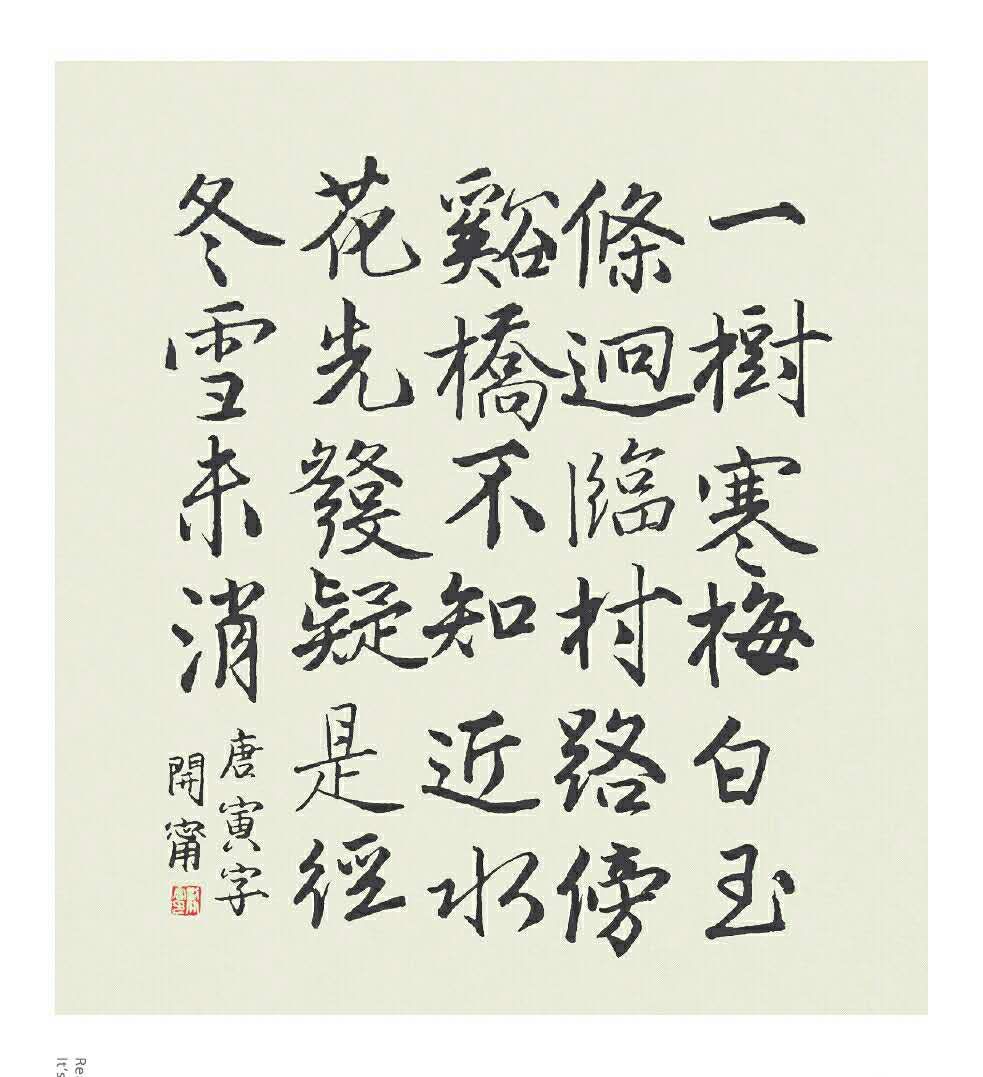 一樹寒梅白玉
條迥臨村路傍
谿橋不知近水
花先發疑是徑
冬雪未消
唐寅字
開甯
Re
It's